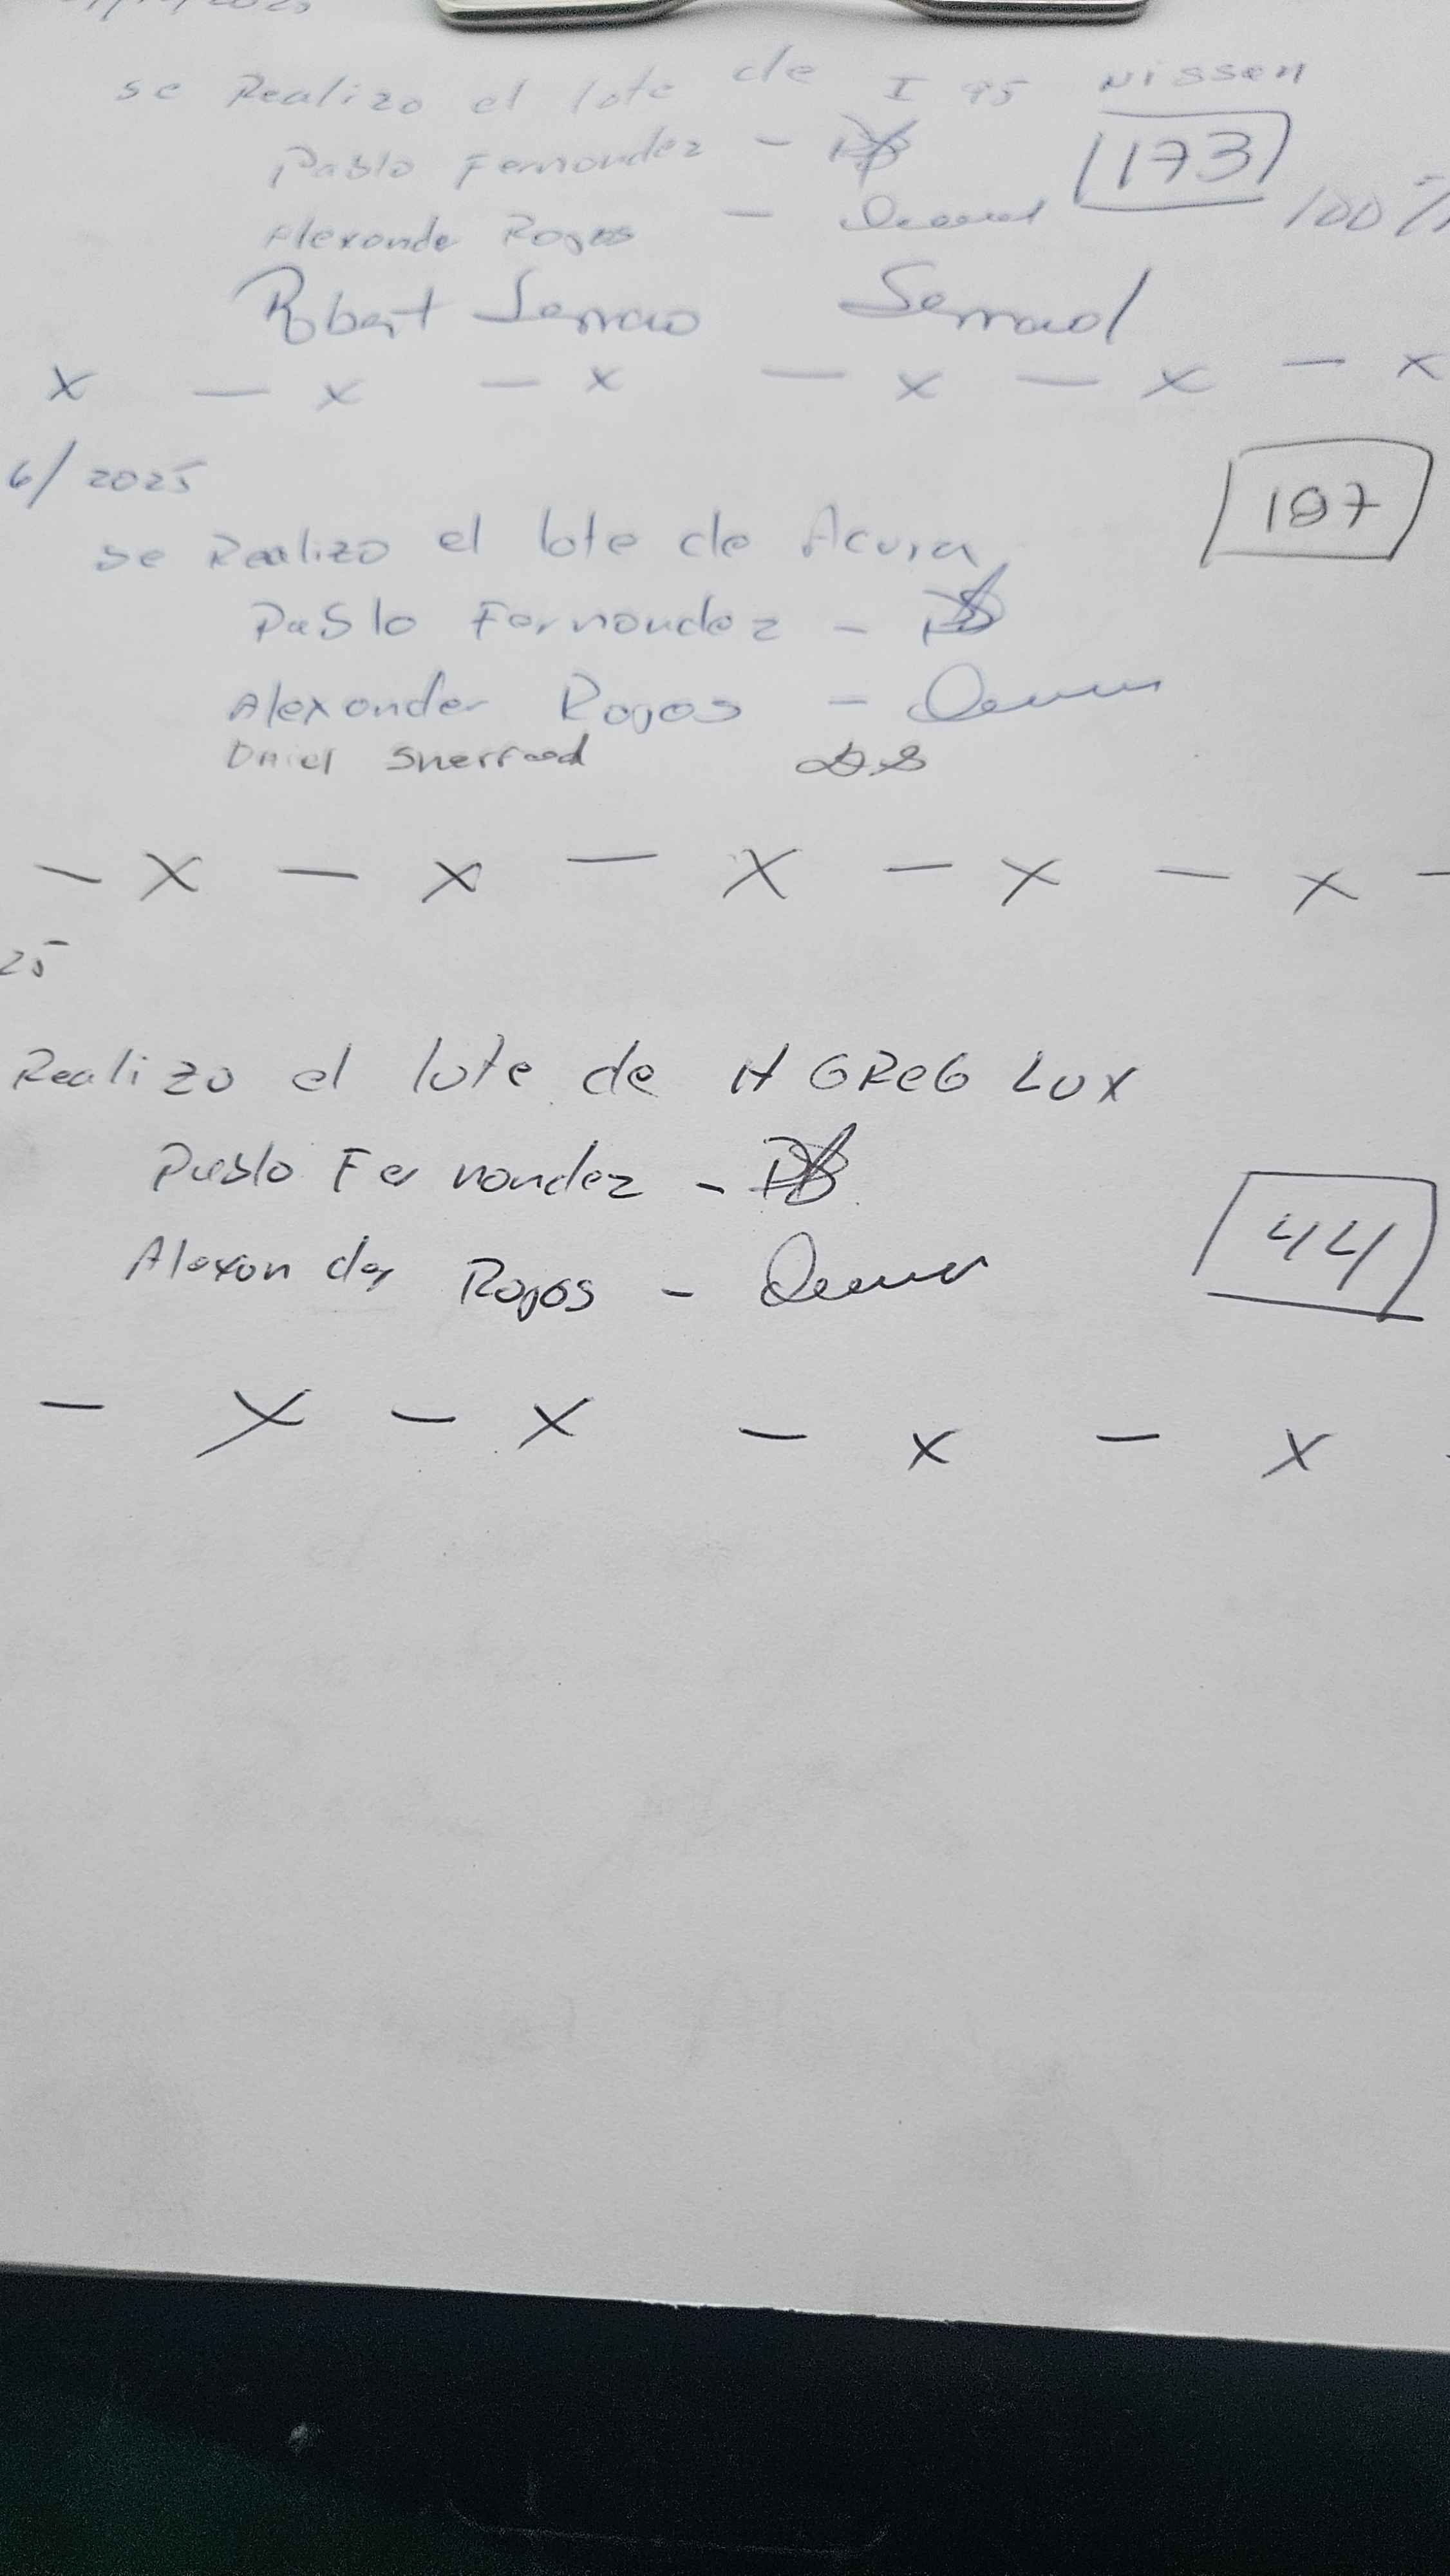 se Realizo el lote de I 95 Nissen
Pablo Fernondez -
173
100%
Alexonde Rogos -
Robert Serrao Serraol
x - x - x - x - x - x
6/2025
197
se Realizo el lote de Acura
Pablo Fernondez -
Alexonder Rogos -
Dniel Sherrod DS
- x - x - x - x - x -
25
Realizo el lote de H GReG Lux
Pablo Fernondez -
44
Alexonder Rogos -
- x - x - x - x